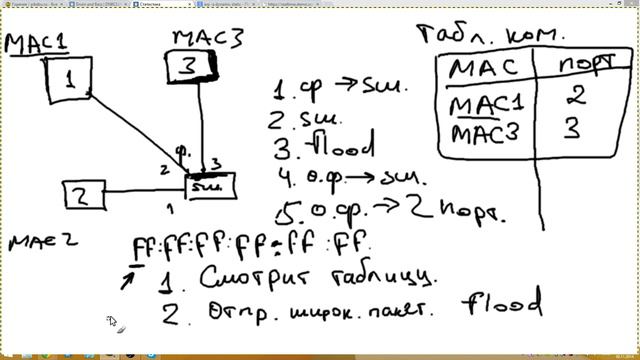 MAC1
MAC3
1
3
2
sw.
ф.
2
3
1
MAC2
Табл. ком.
MAC порт
MAC1 2
MAC3 3
1. ф → sw.
2. sw.
3. flood
4. о.ф. → sw.
5. о.ф. → 2 порт.
ff:ff:ff:ff:ff:ff.
1. Смотрит таблицу.
2. Отпр. широк. пакет. flood